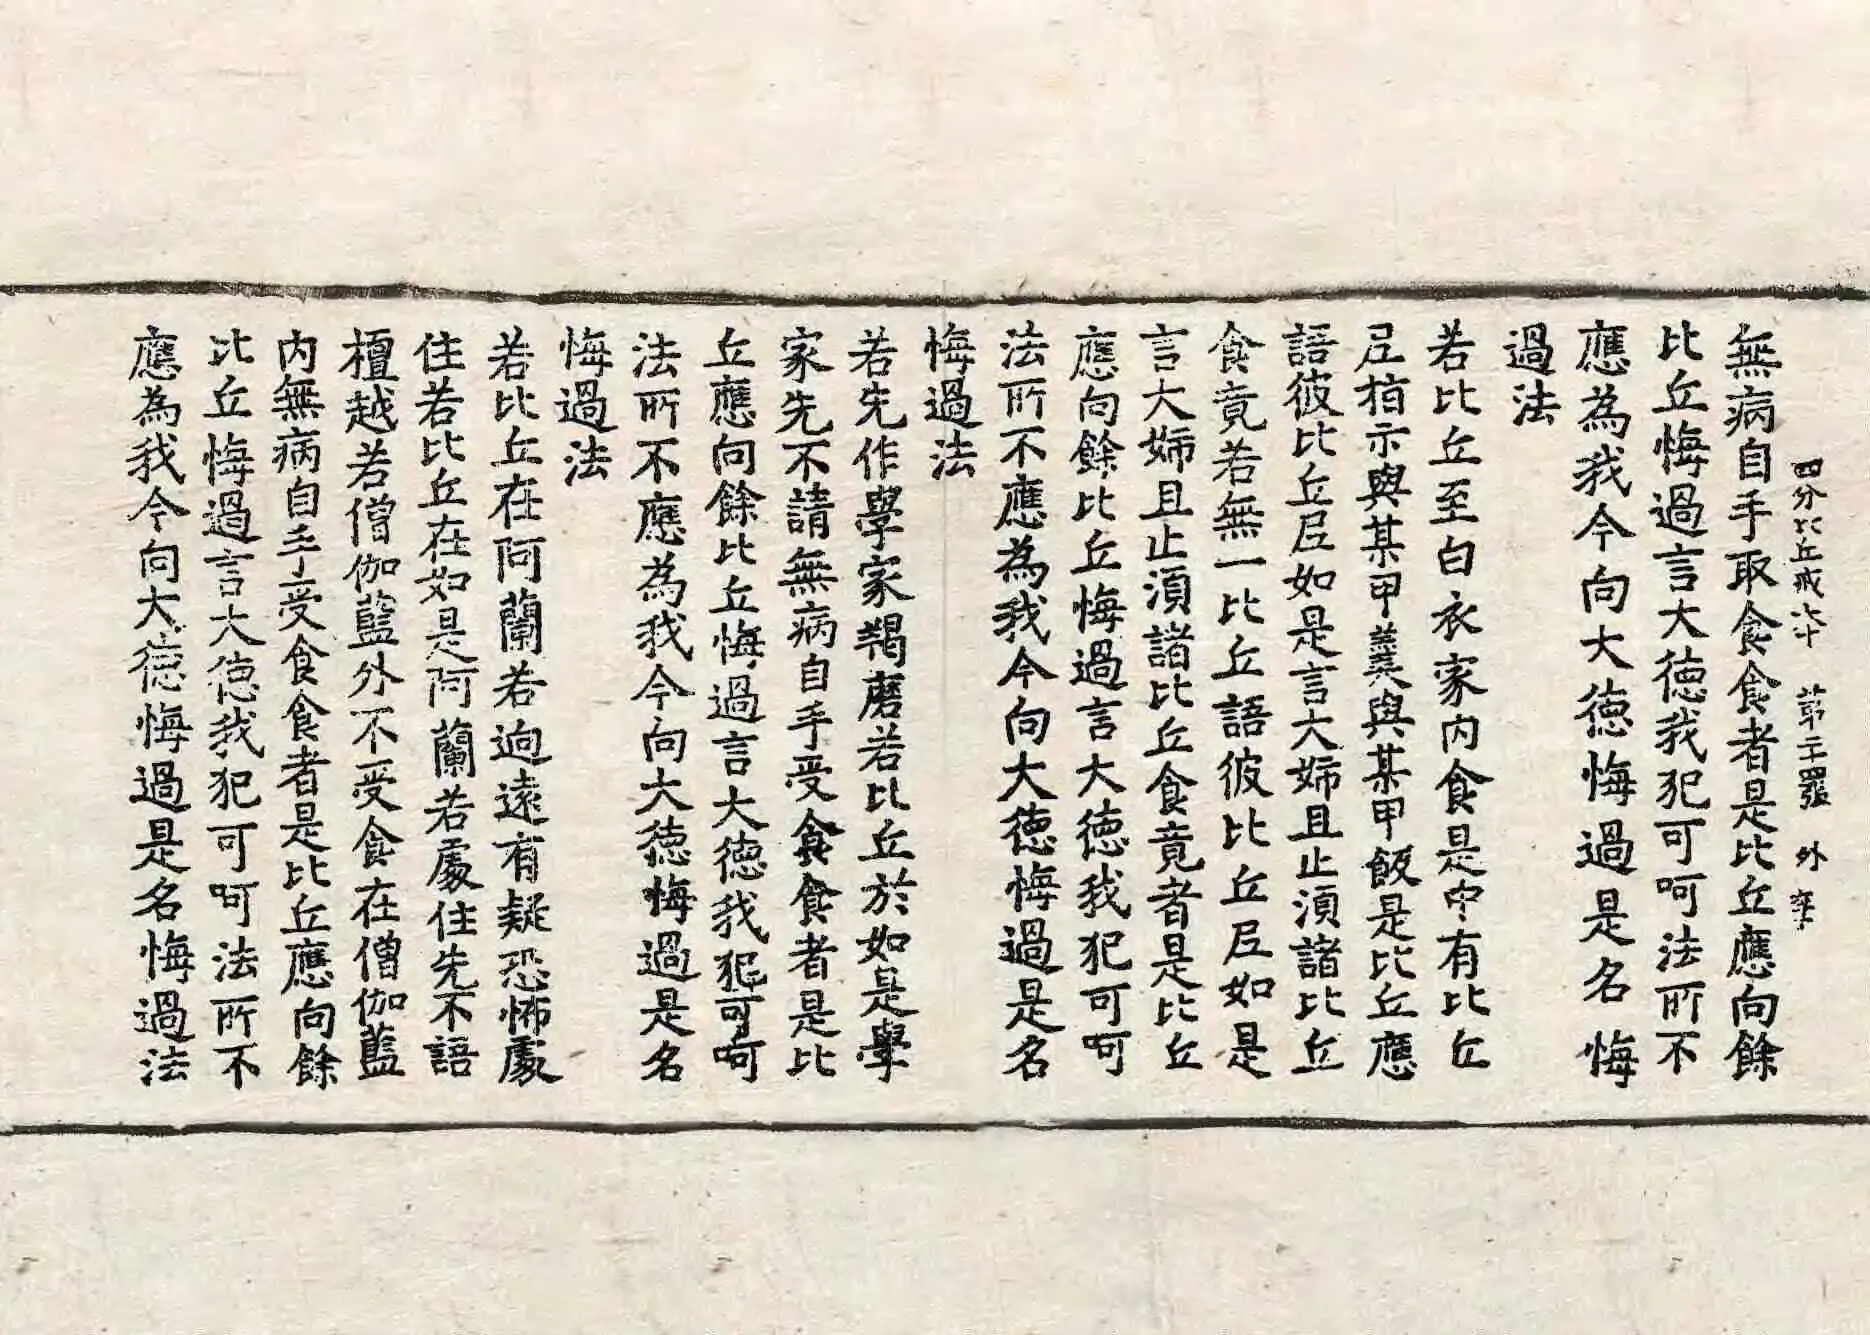 無病自手取食食者是比丘應向餘
比丘悔過言大德我犯可呵法所不
應為我今向大德悔過是名悔
過法
若比丘至白衣家內食是中有比丘
尼指示與某甲羹與某甲飯是比丘應
語彼比丘尼如是言大姉且止須諸比丘
食竟若無一比丘語彼比丘尼如是
言大姉且止須諸比丘食竟者是比丘
應向餘比丘悔過言大德我犯可呵
法所不應為我今向大德悔過是名
悔過法
若先作學家羯磨若比丘於如是學
家先不請無病自手受食食者是比
丘應向餘比丘悔過言大德我犯可呵
法所不應為我今向大德悔過是名
悔過法
若比丘在阿蘭若逈遠有疑恐怖處
住若比丘在如是阿蘭若處住先不語
檀越若僧伽藍外不受食在僧伽藍
內無病自手受食食者是比丘應向餘
比丘悔過言大德我犯可呵法所不
應為我今向大德悔過是名悔過法
四分比丘戒本 第二 外